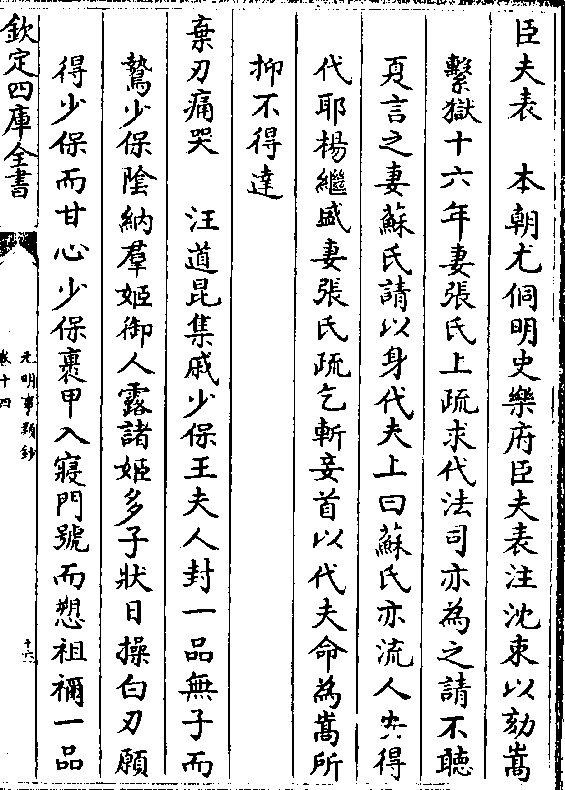 臣夫表　本朝尤侗明史樂府臣夫表注沈束以劾嵩
繫獄十六年妻張氏上疏求代法司亦為之請不聽
夏言之妻蘇氏請以身代夫上曰蘇氏亦流人安得
代耶楊繼盛妻張氏疏乞斬妾首以代夫命為嵩所
抑不得達
棄刃痛哭　汪道昆集戚少保王夫人封一品無子而
鷙少保陰納羣姬御人露諸姬多子狀日操白刃願
得少保而甘心少保裹甲入寢門號而愬祖禰一品
欽定四庫全書
元明事類鈔
卷十四
十六